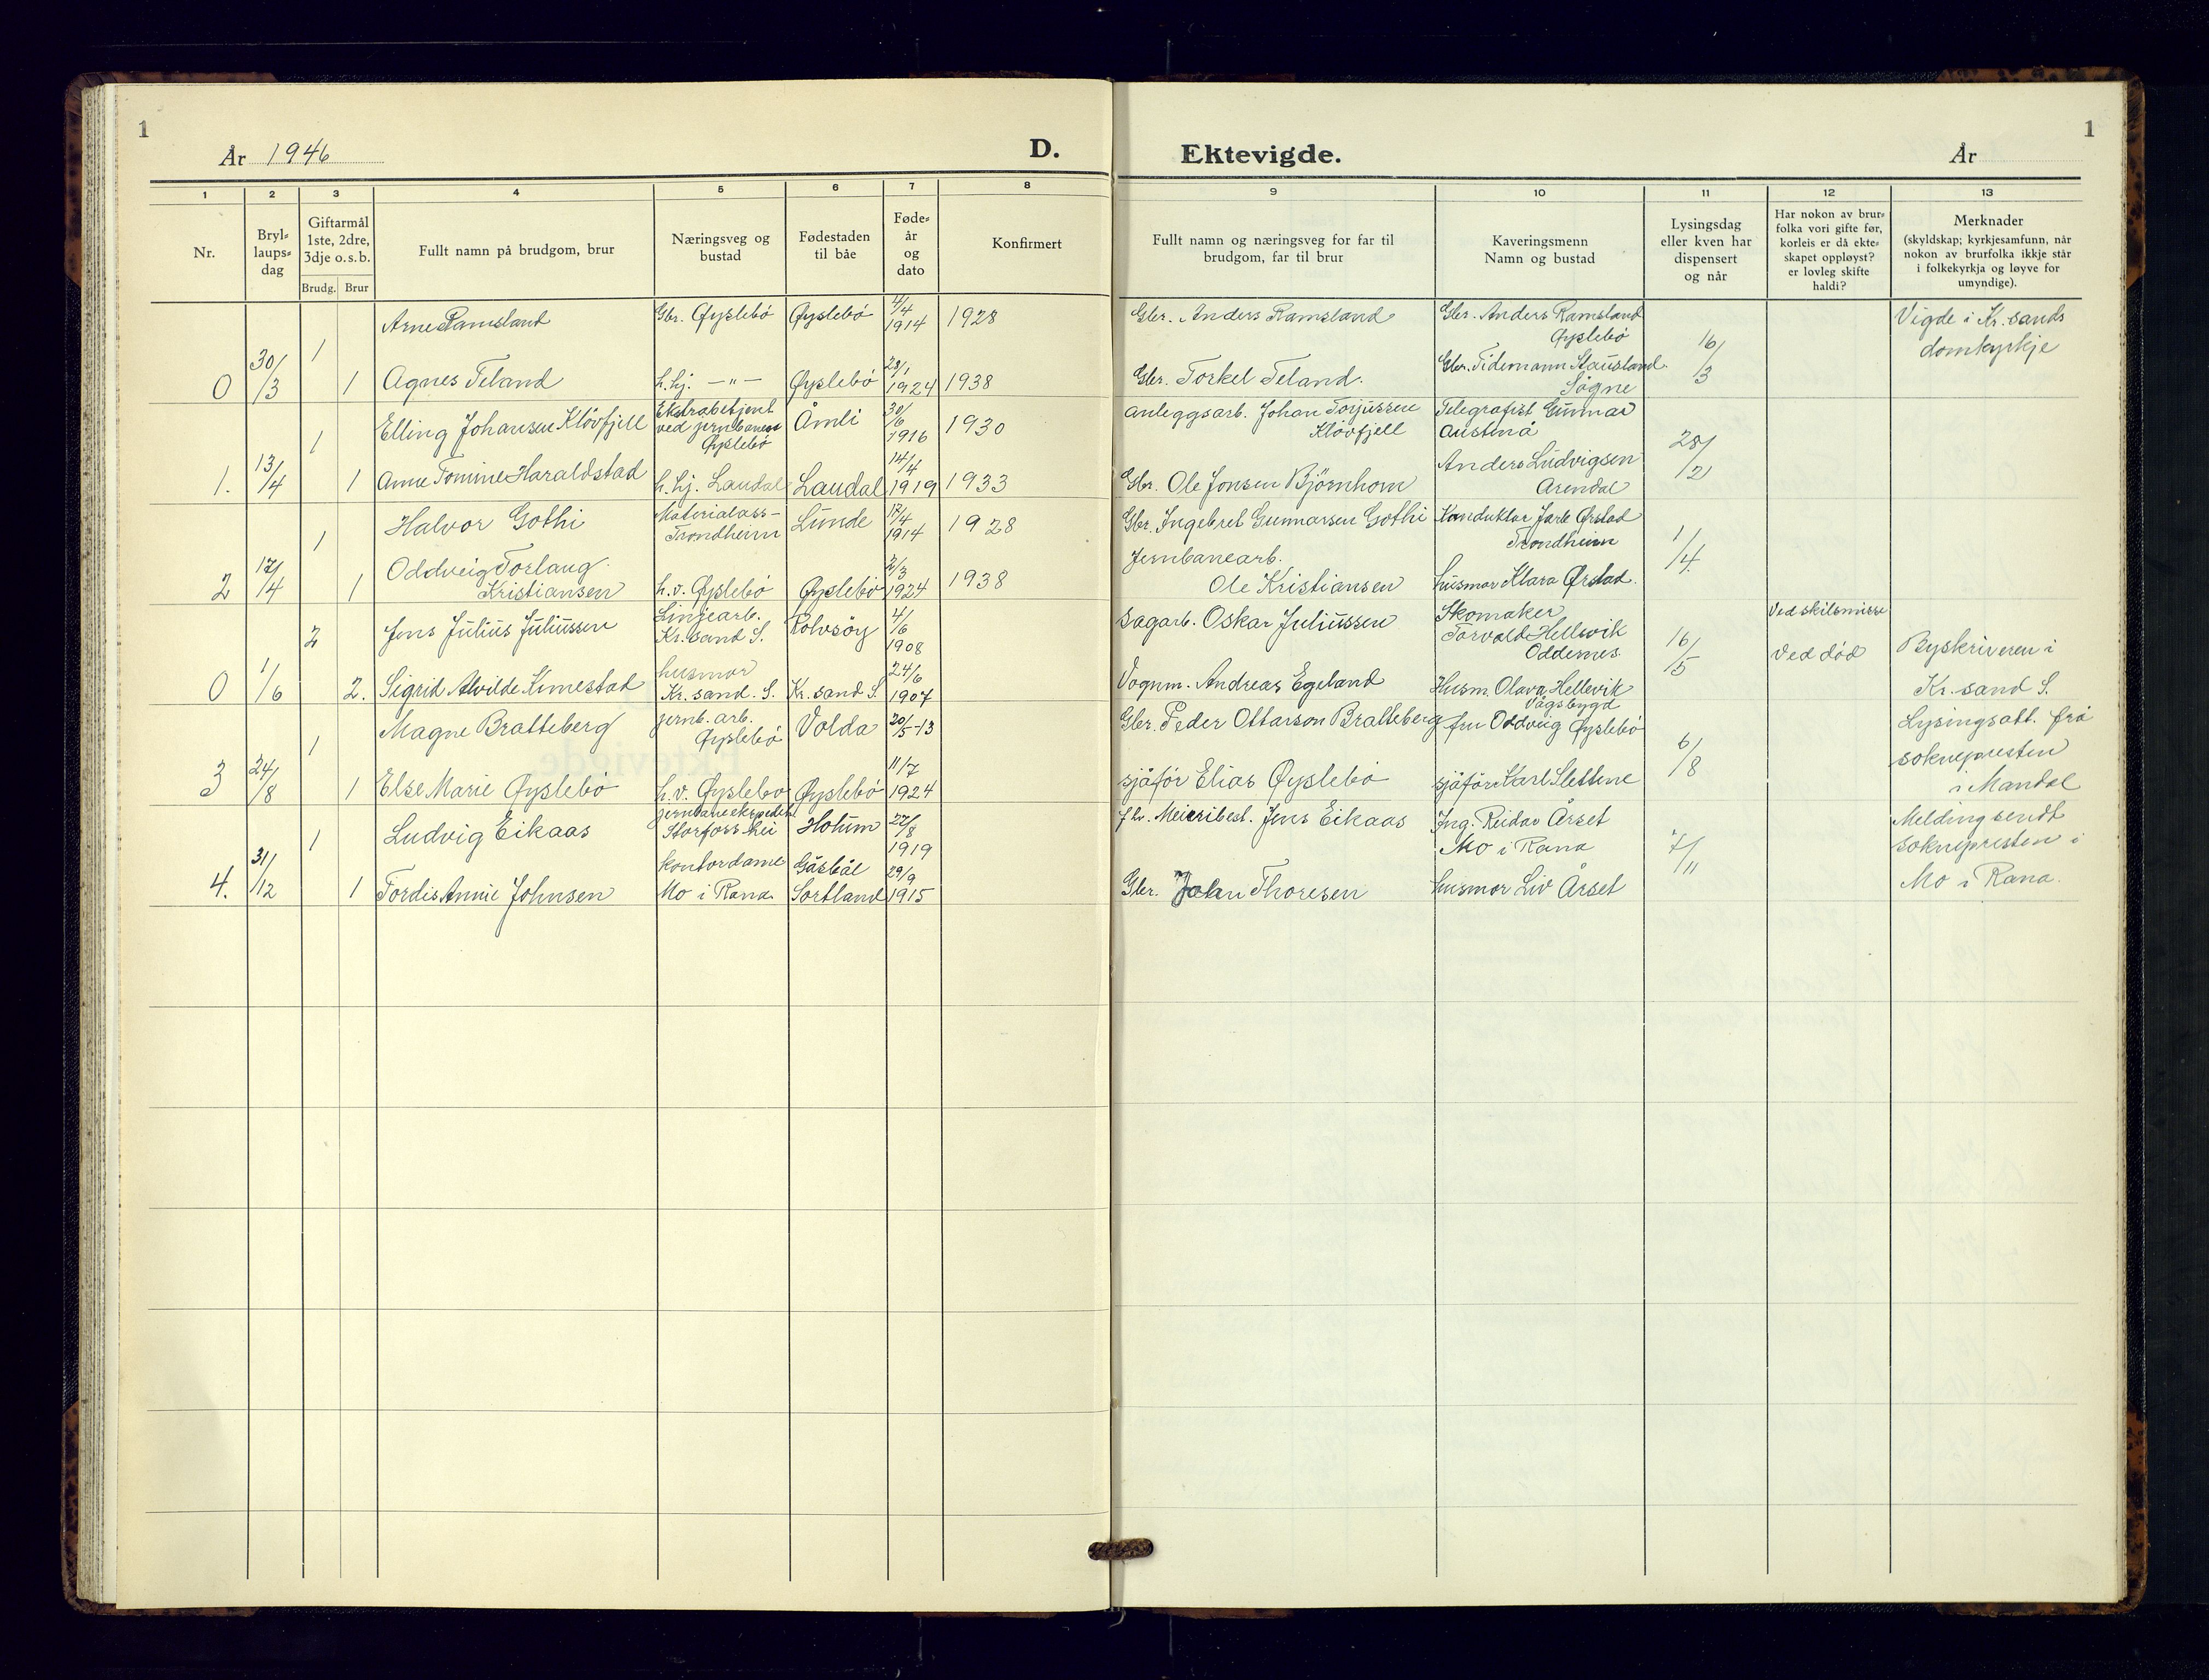 1
År 1946
D.
Ektevigde.
År
1
1 2 3 4 5 6 7 8 9 10 11 12 13
Nr.
Bryl-
laups-
dag
Giftarmål
1ste, 2dre,
3dje o.s.b.
Brudg. Brur
Fullt namn på brudgom, brur
Næringsveg og
bustad
Fødestaden
til båe
Føde-
år
og
dato
Konfirmert
Fullt namn og næringsveg for far til
brudgom, far til brur
Kaveringsmenn
Namn og bustad
Lysingsdag
eller kven har
dispensert
og når
Har nokon av brur-
folka vori gifte før,
korleis er då ekte-
skapet oppløyst?
er lovleg skifte
haldi?
Merknader
(skyldskap; kyrkjesamfunn, når
nokon av brurfolka ikkje står
i folkekyrkja og løyve for
umyndige).
1 Arne Ramsland Gbr. Øyslebö Øyslebö 4/4 1914 1928 Gbr. Anders Ramsland Gbr. Anders Ramsland Øyslebö 16/3 Vigde i Kr. sands domkyrkje
0 30/3 1 Agnes Teland h.hj. — " — Øyslebö 1924 1938 Gbr. Torkel Teland. Gbr. Tidemann Stausland Sögne
1 Elling Johansen Klövfjell Ekstrabetjent ved jernbanen Øyslebö Åmli 30/6 1916 1930 anleggsarb. Johan Torjussen Klövfjell Telegrafist Gunnar Austenå 28/2
1. 13/4 1 Anne Tomine Haraldstad h.hj. Laudal Laudal 14/4 1919 1933 Gbr. Ole Jonsen Björnhom Anders Ludvigsen Arendal
1 Halvor Gothi Materialass- Trondheim Lunde 1914 1928 Gbr. Ingebret Gunnarsen Gothi Konduktør Jarle Ørstad Trondheim 1/4
2 17/4 1 Oddveig Torlaug Kristiansen h.v. Øyslebö Øyslebö 2/3 1924 1938 Jernbanearb. Ole Kristiansen husmor Klara Ørstad.
2 Jens Julius Juliussen Linjearb. Kr. sand S. Rolvsöy 4/6 1908 sagarb. Oskar Juliussen Skomaker Torvald Hellevik Oddernes 16/5 Ved skilsmisse Byskriveren i Kr. sand S.
0 1/6 2. Sigrid Alvilde Kimestad husmor Kr. sand. S. Kr. sand S. 24/6 1907 Vognm. Andreas Egeland Husm. Olava Hellevik Vågsbygd ved död
1 Magne Bratteberg jernb. arb. Øyslebö Volda 20/5-13 Gbr. Peder Ottarson Bratteberg fru Oddveig Øyslebö 6/8 Lysingsatt. frå soknepresten i Mandal
3 24/8 1 Else Marie Øyslebö h.v. Øyslebö Øyslebö 11/7 1924 sjåför Elias Øyslebö sjåför Karl Slettene
1 Ludvig Eikaas Storforshei Holum 27/8 1919 Meieribest. Jens Eikaas Ing. Reidar Årset Mo i Rana 7/11 Melding sendt soknepresten i Mo i Rana.
4. 31/12 1 Tordis Annie Johnsen kontordame Mo i Rana Gåsbål Sortland 29/9 1915 Gbr. John Thoresen husmor Liv Årset